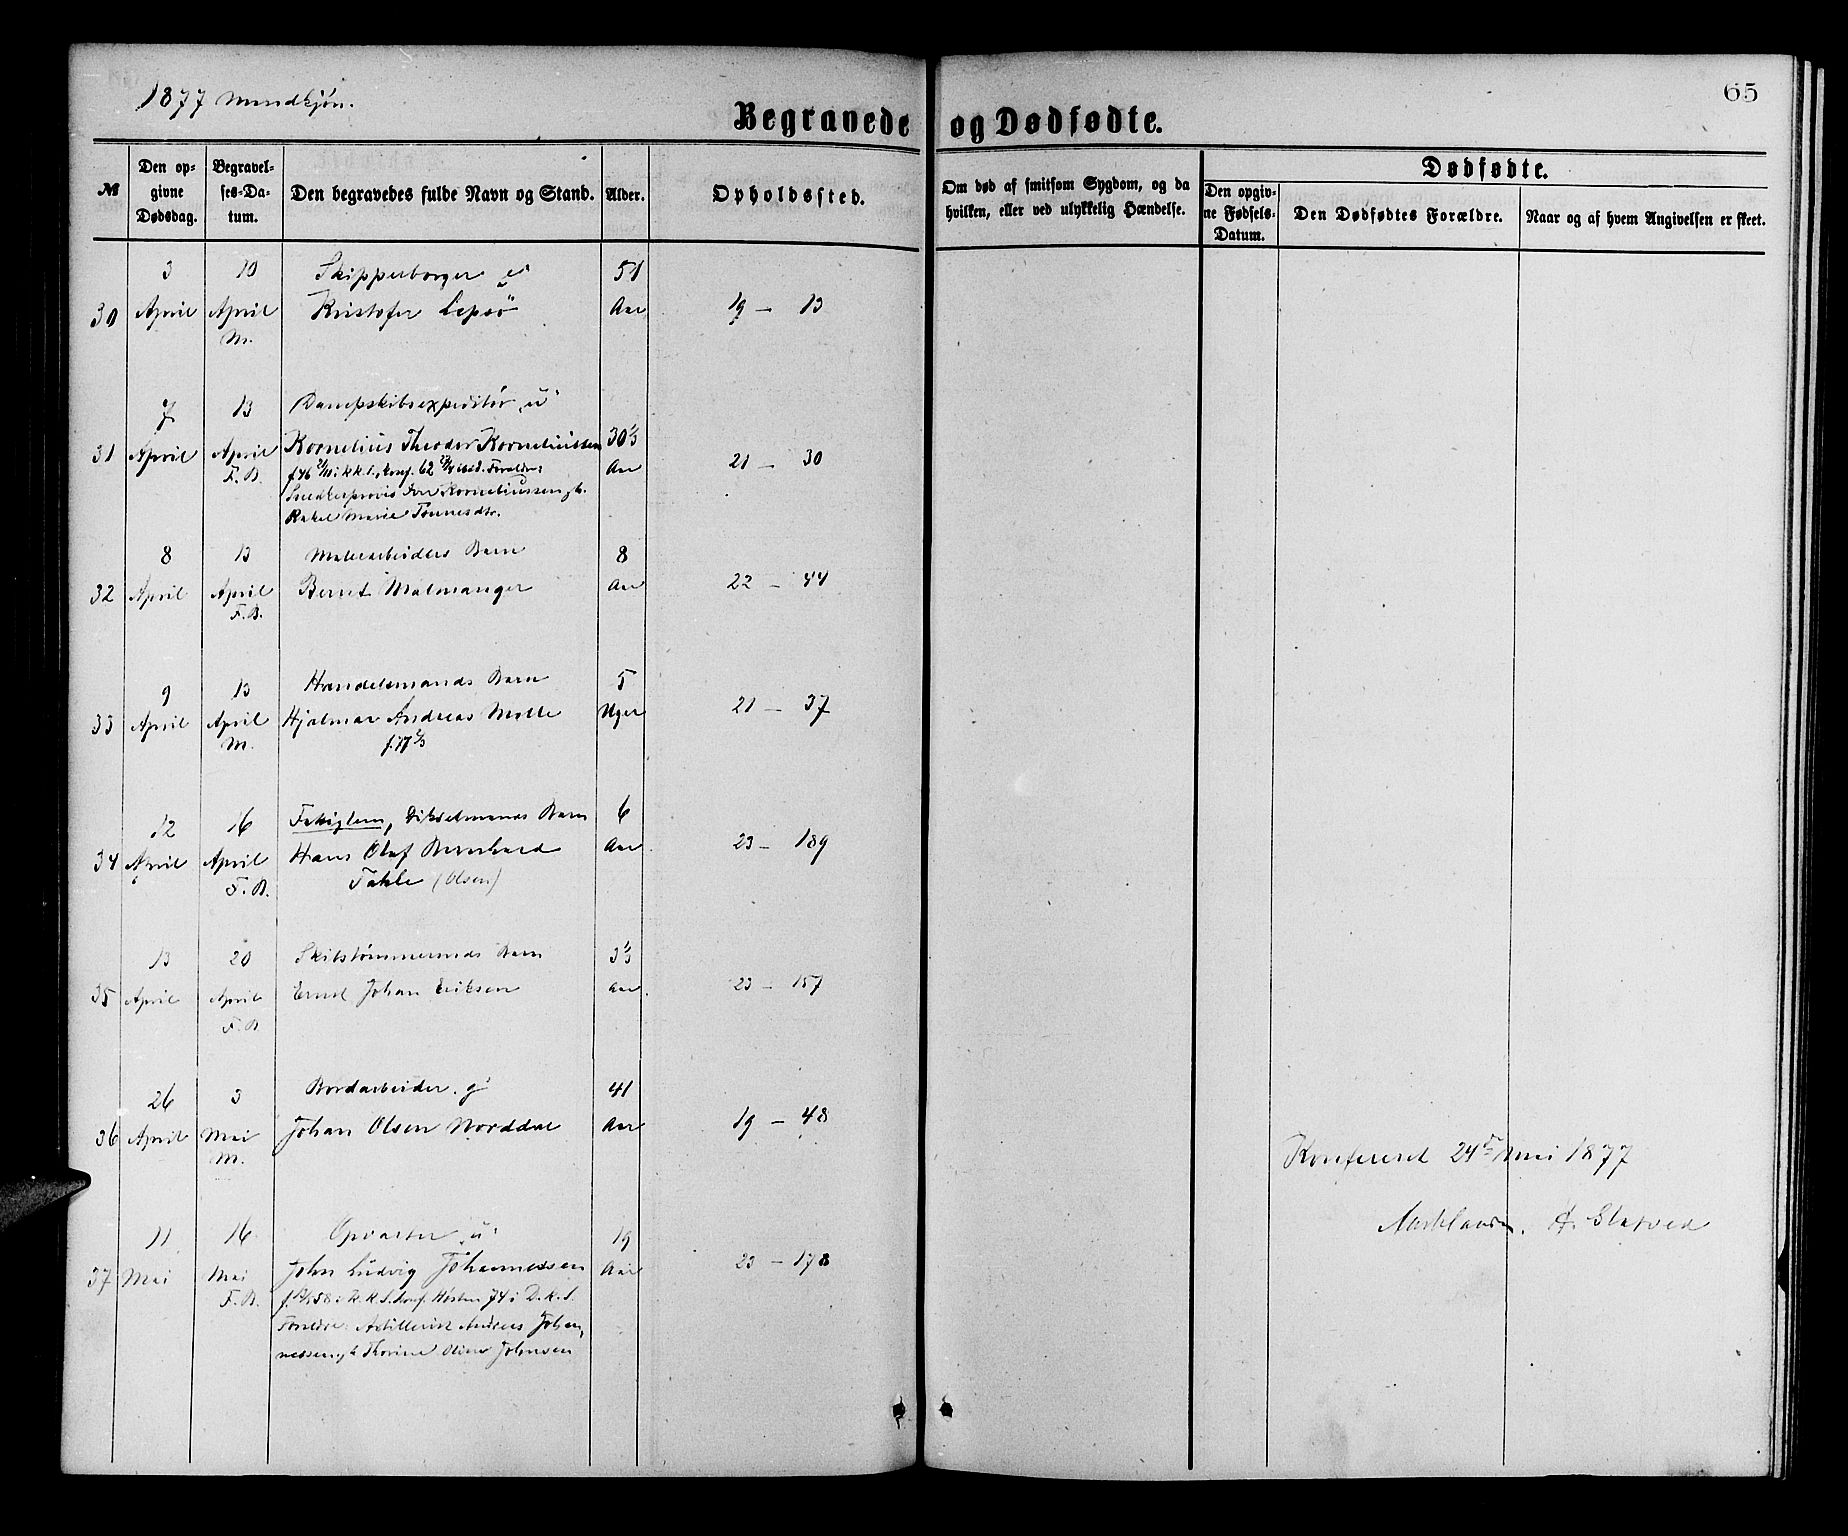 1877 Mandkjøn.
65
Begravede og Dødfødte.
№
Den opgivne Dødsdag.
Begravelses-Datum.
Den begravedes fulde Navn og Stand.
Alder.
Opholdssted.
Om død af smitsom Sygdom, og da hvilken, eller ved ulykkelig Hændelse.
Dødfødte.
Den opgivne Fødsels-Datum.
Den Dødfødtes Forældre.
Naar og af hvem Angivelsen er skeet.
3 10 Skipperborger 51
30 April April Kristofer Lepsö Aar 19 — 13
M.
7 13 Dampskibsexpeditør „u“
31 April April Kornelius Theodor Korneliussen 30⅓ 21 — 30
F. B. Aar
Korneliussen
Rakel Marie Tønnesdtr.
8 13 Malerarbeiders Barn 8
32 April April Bernt Malmanger Aar 22 — 44
F. B.
9 13 Handelsmands Barn 5
33 April April Hjalmar Andreas Molle Uger 21 — 37
M. f. 77
12 16 Barn 6
34 April April Hans Olaf Bernhard Aar 23 — 189
F. B. Takle (Olsen)
13 20 Skibstømmermds Barn 3⅓
35 April April Ernst Johan Eriksen Aar. 23 — 157
F. B
26 3 Bordarbeider. g 41
36 April Mai Johan Olsen Norddal Aar 19 — 48
M.
11 16 Opvarter „u“ 19
37 Mai Mai John Ludvig Johannessen Aar 23 — 178
F. B. 58 i K. K. S. konf. Høsten 74 i D. K. S.
Foreldre: Artillerist Andreas Johan-
nessen Thorine Johnsen
Konfereret 24de Mai 1877